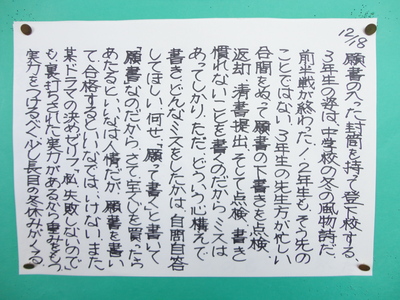 12/18
願書の入った封筒を持って登下校する、
3年生の姿は中学校の冬の風物詩だ。
前半戦が終わった1・2年生も、その先の
ことではない。3年生の先生方が忙しい
合間をぬって願書の下書きを点検、
返却、清書、提出、そして点検。書き
慣れないことを書くのだから、ミスは
あってしかり。ただ、どういう心構えで
書き、どんなミスをしたかは、自問自答
してほしい。何せ、「願って書く」と書いて
「願書」なのだから。さて、宝くじを買ったら
あたるといいなは人情だが、願書を書い
て、合格するといいなでは、いけない。また、
某ドラマの決めゼリフ、「私、失敗しないので」
も裏打ちされた実力があるから重みをもつ。
実力をつけるべく、少し長目の冬休みがくる。